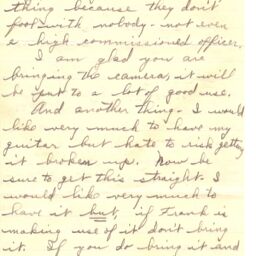 thing because they don't
fool with nobody - not even
a high commissioned officer.
I am glad you are
bringing the camera, it will
be put to a lot of good use.
And another thing - I would
like very much to have my
guitar but hate to risk getting
it broken up. Now be
sure to get this straight. I
would like very much to
have it but, if Frank is
making use of it don't bring
it. If you do bring it and